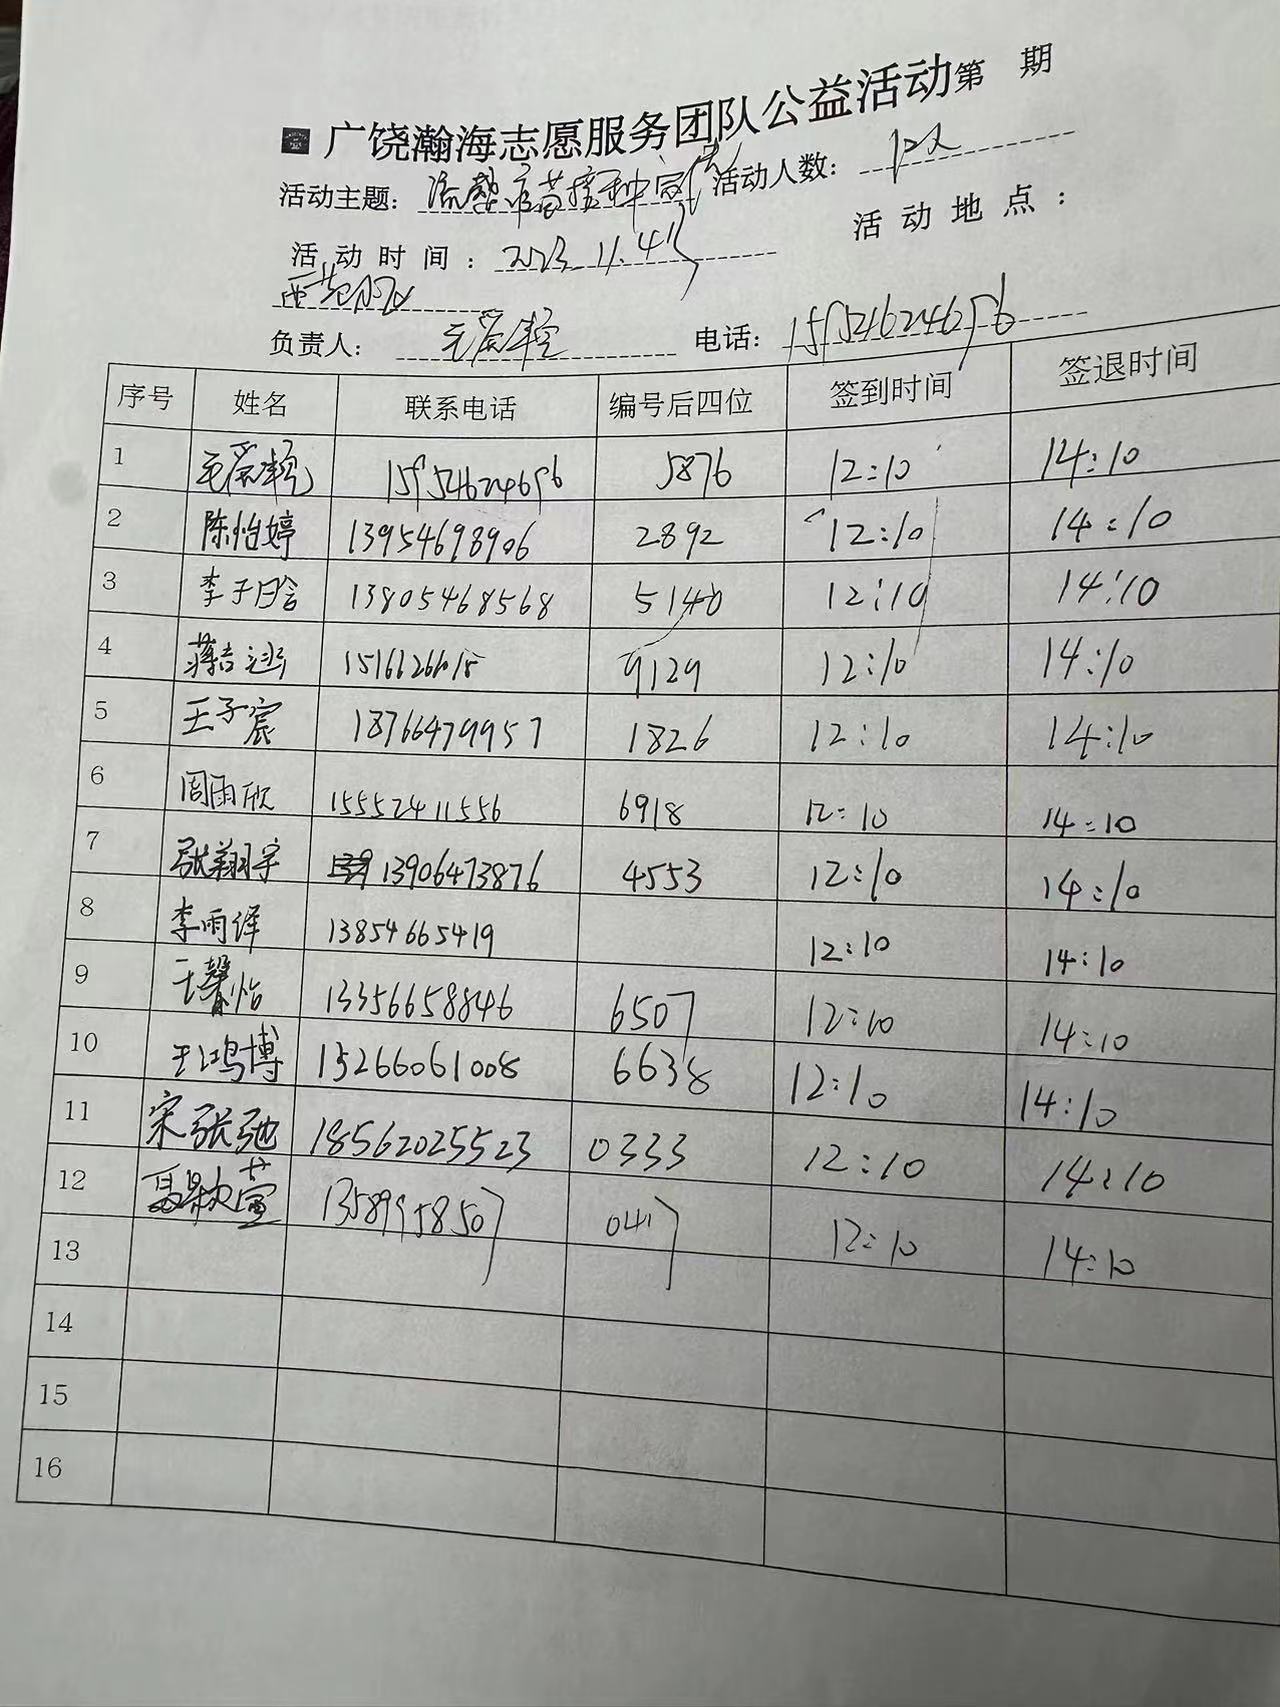 广饶瀚海志愿服务团队公益活动第 期
活动主题：流感疫苗接种宣传 活动人数：12人
活动时间：2023.11.4 活动地点：
负责人： 电话：15954624656
序号 姓名 联系电话 编号后四位 签到时间 签退时间
1 15954624656 5876 12:10 14:10
2 陈怡婷 13954698906 2892 12:10 14:10
3 李子晗 13805468568 5140 12:10 14:10
4 9129 12:10 14:10
5 王子宸 18766479957 1826 12:10 14:10
6 周雨欣 15552411556 6918 12:10 14:10
7 张翔宇 13906473876 4553 12:10 14:10
8 李雨泽 13854665419 12:10 14:10
9 王馨怡 13356658846 6507 12:10 14:10
10 王鸿博 15266061008 6638 12:10 14:10
11 宋张弛 18562025523 0333 12:10 14:10
12 13589958507 0417 12:10 14:10
13
14
15
16